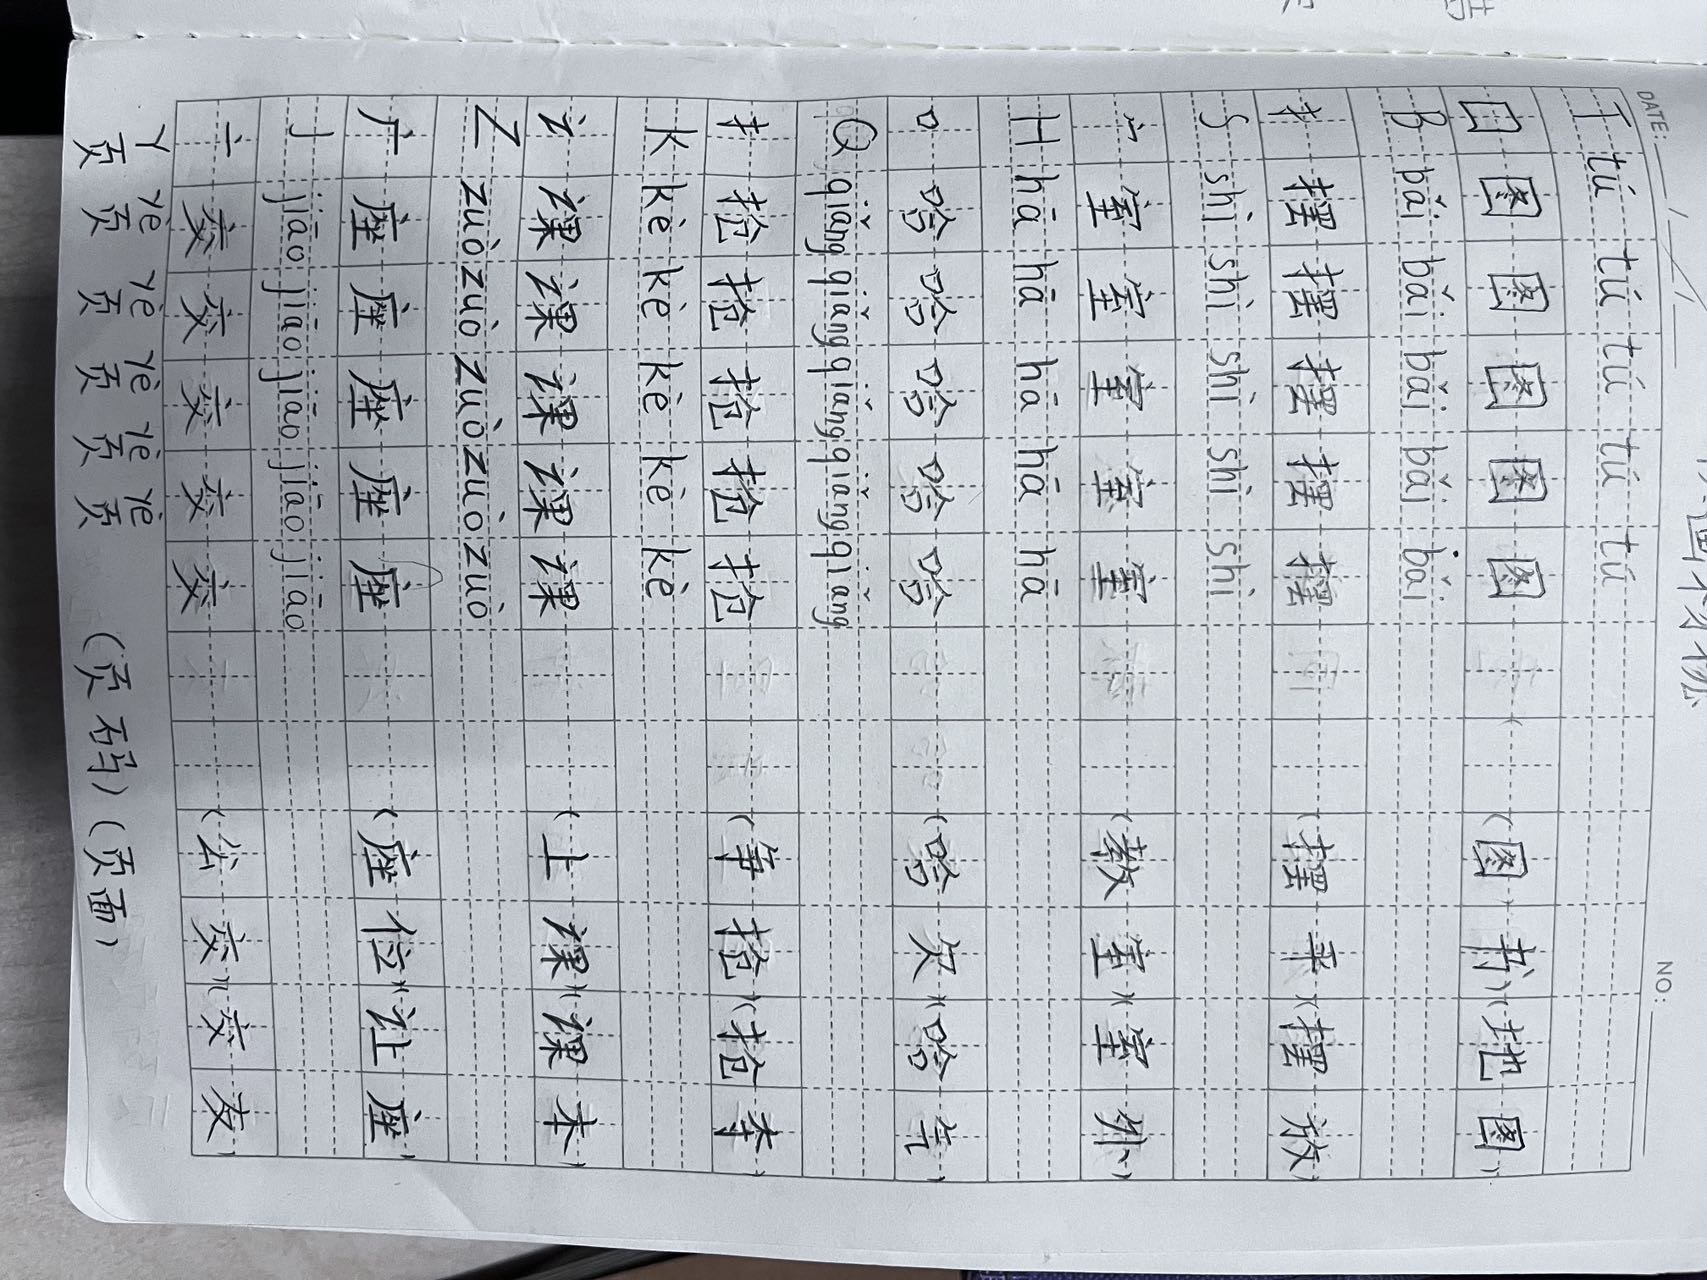 DATE:
NO:
T tú tú tú tú tú
囗 图 图 图 图 图 (图书)(地图)
B bǎi bǎi bǎi bǎi bǎi
扌 摆 摆 摆 摆 摆 (摆平)(摆放)
S shì shì shì shì shì
宀 室 室 室 室 室 (教室)(室外)
H hā hā hā hā hā
口 哈 哈 哈 哈 哈 (哈欠)(哈气)
Q qiǎng qiǎng qiǎng qiǎng qiǎng
扌 抢 抢 抢 抢 抢 (争抢)(抢夺)
K kè kè kè kè kè
讠 课 课 课 课 课 (上课)(课本)
Z zuò zuò zuò zuò zuò
广 座 座 座 座 座 (座位)(让座)
J jiāo jiāo jiāo jiāo jiāo
亠 交 交 交 交 交 (公交)(交友)
Y yè yè yè yè
页 页 页 页 页 (页码)(页面)